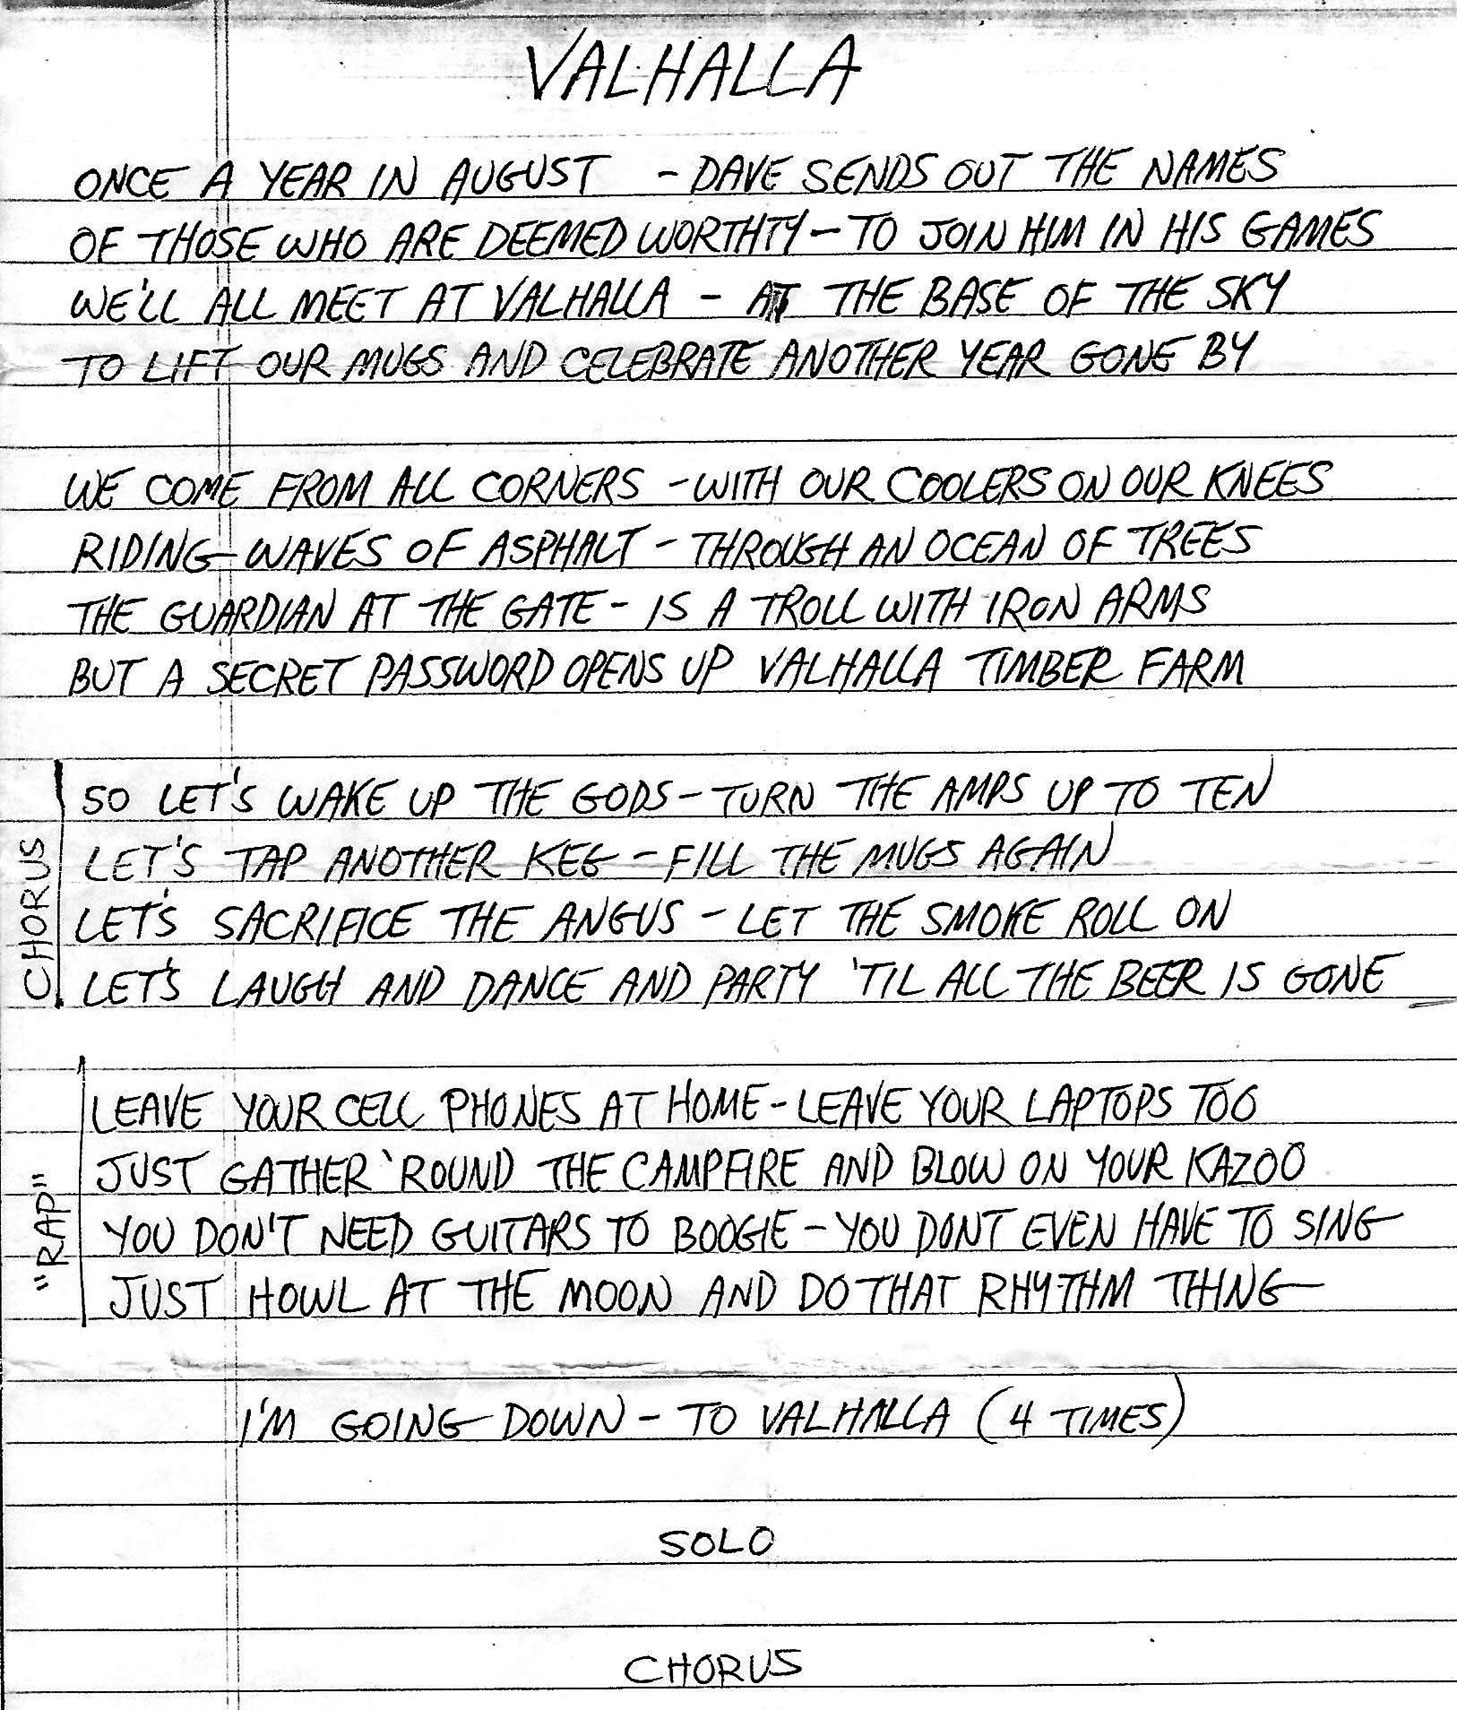 VALHALLA
ONCE A YEAR IN AUGUST - DAVE SENDS OUT THE NAMES
OF THOSE WHO ARE DEEMED WORTHTY - TO JOIN HIM IN HIS GAMES
WE'LL ALL MEET AT VALHALLA - AT THE BASE OF THE SKY
TO LIFT OUR MUGS AND CELEBRATE ANOTHER YEAR GONE BY
WE COME FROM ALL CORNERS - WITH OUR COOLERS ON OUR KNEES
RIDING WAVES OF ASPHALT - THROUGH AN OCEAN OF TREES
THE GUARDIAN AT THE GATE - IS A TROLL WITH IRON ARMS
BUT A SECRET PASSWORD OPENS UP VALHALLA TIMBER FARM
CHORUS
SO LET'S WAKE UP THE GODS - TURN THE AMPS UP TO TEN
LET'S TAP ANOTHER KEG - FILL THE MUGS AGAIN
LET'S SACRIFICE THE ANGUS - LET THE SMOKE ROLL ON
LET'S LAUGH AND DANCE AND PARTY 'TIL ALL THE BEER IS GONE
"RAP"
LEAVE YOUR CELL PHONES AT HOME - LEAVE YOUR LAPTOPS TOO
JUST GATHER 'ROUND THE CAMPFIRE AND BLOW ON YOUR KAZOO
YOU DON'T NEED GUITARS TO BOOGIE - YOU DONT EVEN HAVE TO SING
JUST HOWL AT THE MOON AND DO THAT RHYTHM THING
I'M GOING DOWN - TO VALHALLA (4 TIMES)
SOLO
CHORUS